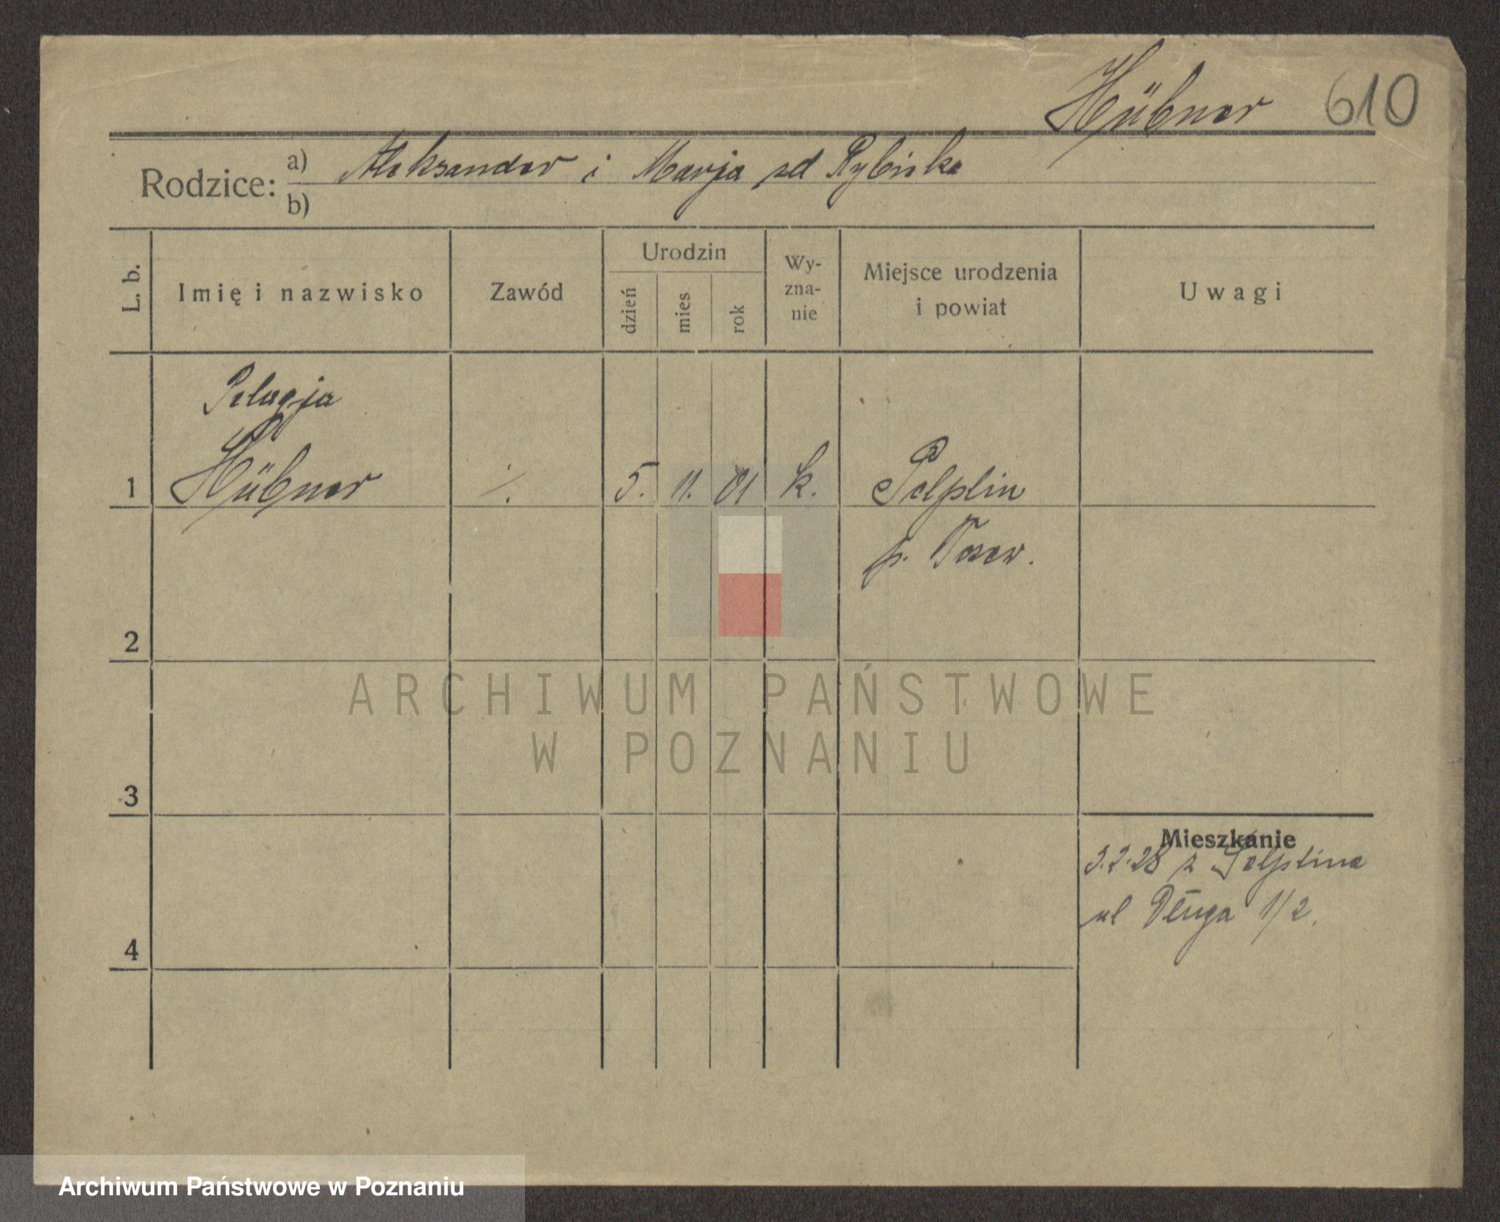 Hübner 610
Rodzice: a) Aleksander i Marja zd Rybicka
b)
L. b. Imię i nazwisko Zawód Urodzin dzień mies rok Wy-zna-nie Miejsce urodzenia i powiat Uwagi
Pelagja
1 Hübner ·/. 5. 11. 01 k. Pelplin
p. Tczew.
2
ARCHIWUM PAŃSTWOWE
W POZNANIU
3
Mieszkanie
3.2.28 z Pelplina
4 ul Długa 1/2.
Archiwum Państwowe w Poznaniu